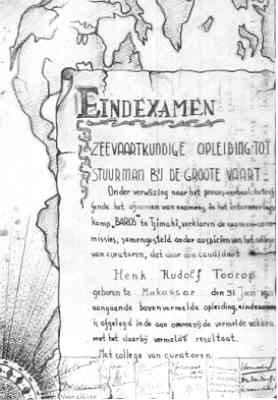 EINDEXAMEN
ZEEVAARTKUNDIGE OPLEIDING TOT
STUURMAN BIJ DE GROOTE VAART
Onder verwijzing naar het
het afnemen van examens, in het
kamp "BAROS" te Tjimahi, verklaren de examen com-
missies, samengesteld onder auspiciën van het college
van curatoren, dat door den candidaat
Henk Rudolf Toorop
geboren te Makassar den 31 Jan
aangaande bovenvermelde opleiding, eindexamen
is afgelegd in de aan ommezijde vermelde vakken,
met het daarbij vermelde resultaat.
Het college van curatoren.